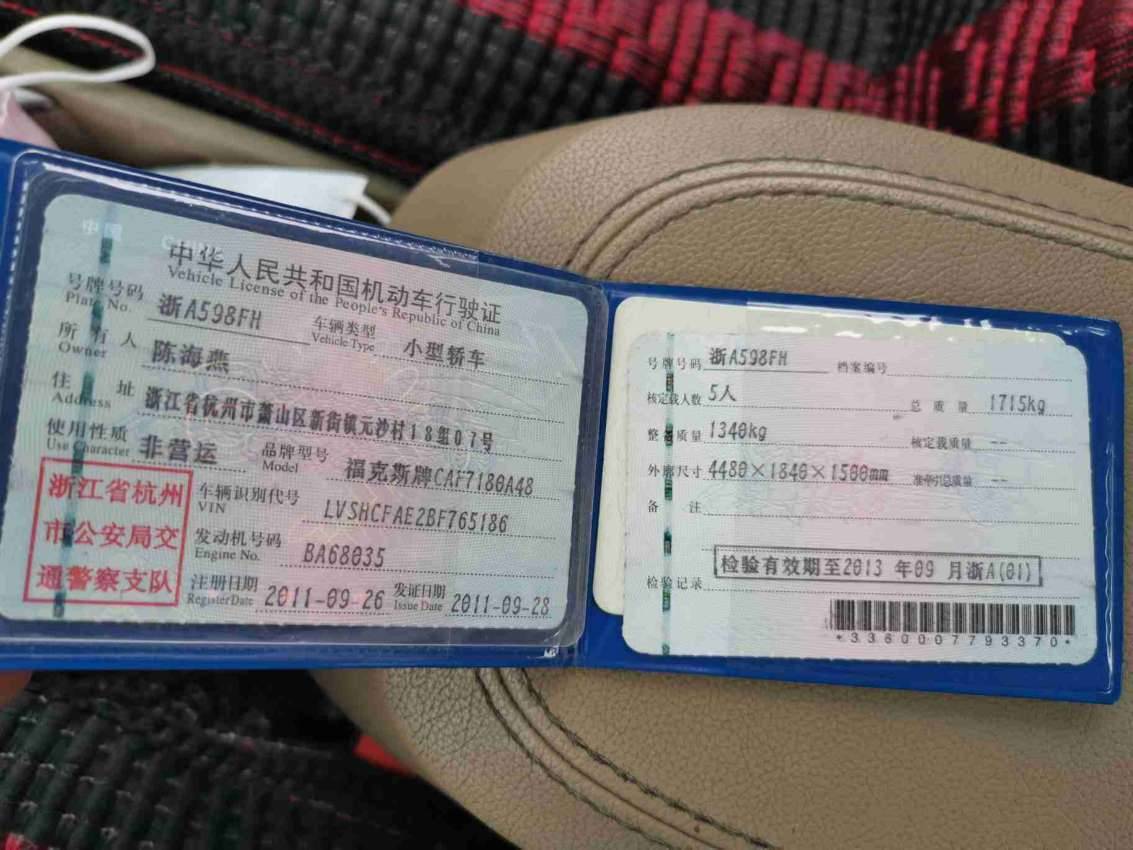 中华人民共和国机动车行驶证
Vehicle License of the People's Republic of China
号牌号码 浙A598FH 车辆类型 小型轿车
Plate No. Vehicle Type
所有人 陈海燕
Owner
住址 浙江省杭州市萧山区新街镇元沙村18组07号
Address
使用性质 非营运 品牌型号 福克斯牌CAF7180A48
Use Character Model
浙江省杭州
市公安局交
通警察支队
车辆识别代号 LVSHCFAE2BF765186
VIN
发动机号码 BA68035
Engine No.
注册日期 2011-09-26 发证日期 2011-09-28
Register Date Issue Date
号牌号码 浙A598FH 档案编号
核定载人数 5人 总质量 1715kg
整备质量 1340kg 核定载质量 --
外廓尺寸 4480×1840×1500mm 准牵引总质量 --
备注
检验记录 检验有效期至2013 年09 月浙A(01)
*3360007793370*